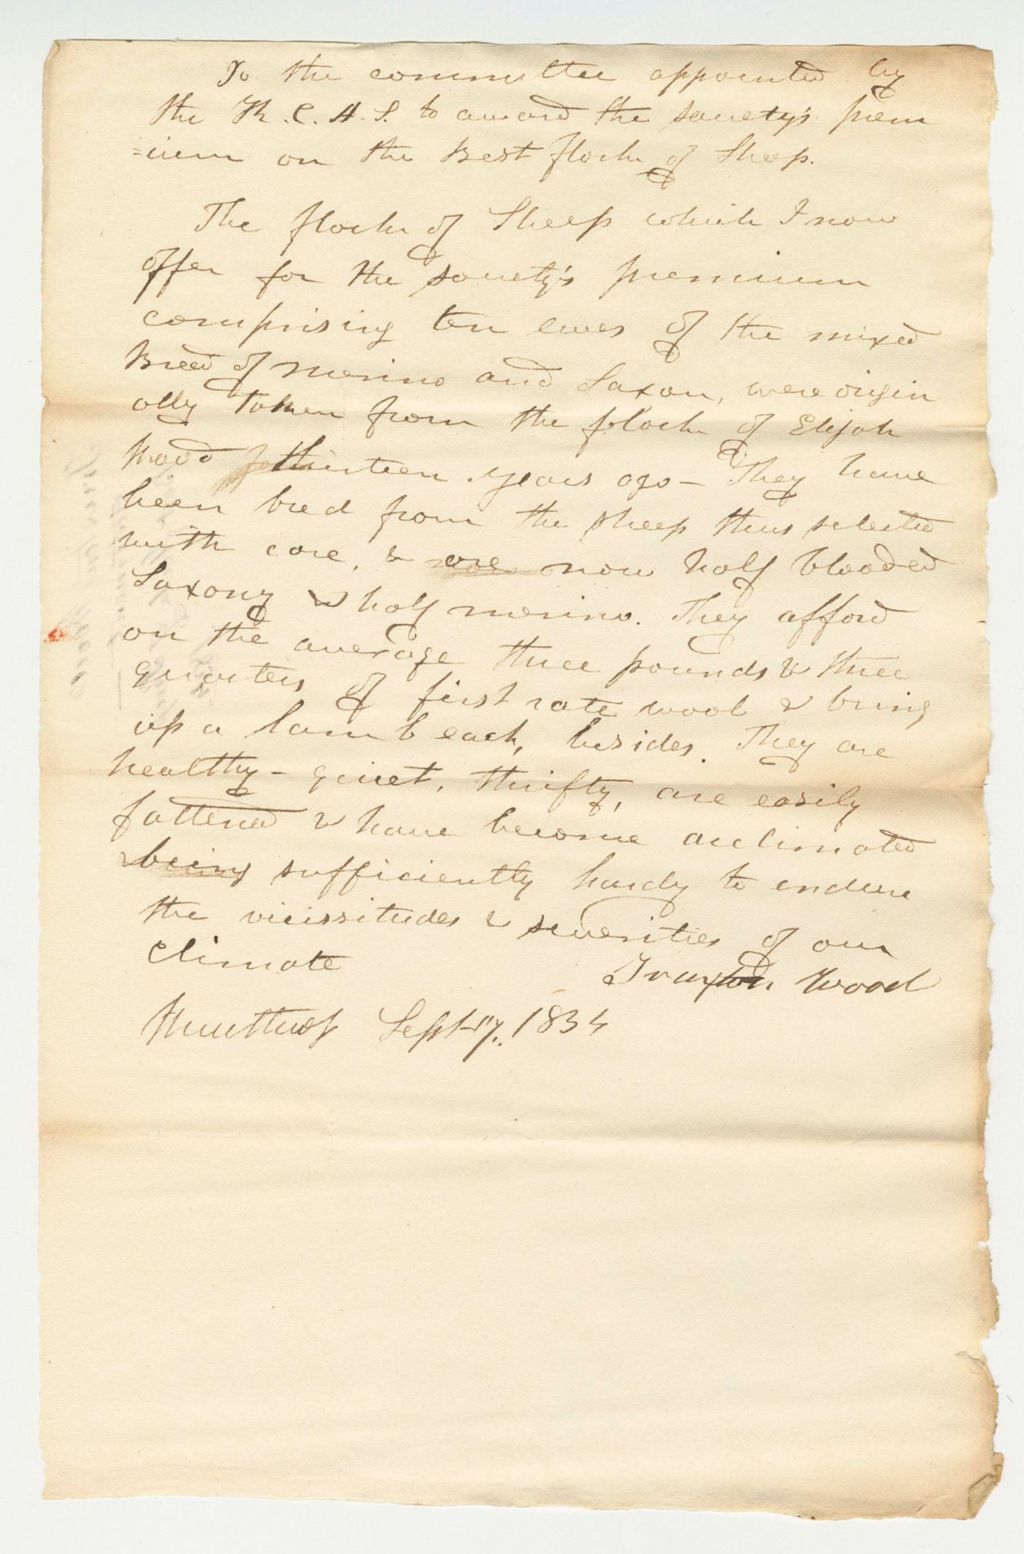 To the committee appointed by
the K. C. A. S. to award the society's prem
=ium on the Best flock of Sheep.
The flock of Sheep which I now
offer for the society's premium
comprising ten ewes of the mixed
Breed of merino and Saxon, were origin
ally taken from the flock of Elijah
Wood thirteen years ago - They have
been bred from the sheep thus selected
with care, & are now half blooded
Saxony & half merino. They afford
on the average three pounds & three
quarters of first rate wool & bring
up a lamb each, besides. They are
healthy - quiet, thrifty, are easily
fattened & have become acclimated
being sufficiently hardy to endure
the vicissitudes & severities of our
climate
Truxton Wood
Winthrop Sept 17. 1834